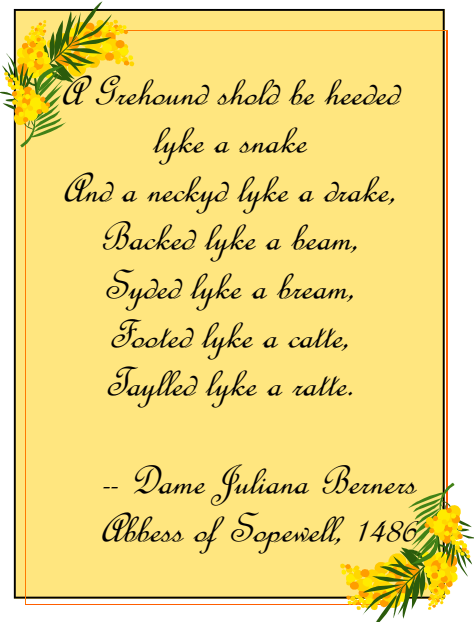 A Grehound shold be heeded
lyke a snake
And a neckyd lyke a drake,
Backed lyke a beam,
Syded lyke a bream,
Footed lyke a catte,
Taylled lyke a ratte.
-- Dame Juliana Berners
Abbess of Sopewell, 1486